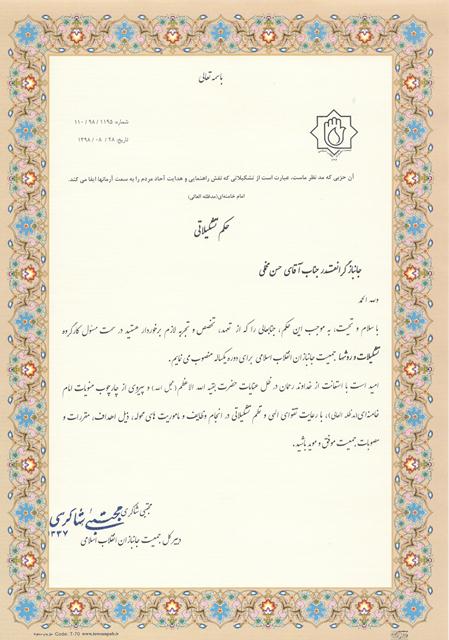 باسمه تعالی
شماره: ۱۱۹۵ / ۹۸ / ۱۱۰
تاریخ: ۲۸ / ۰۸ / ۱۳۹۸
آن حزبی که مد نظر ماست، عبارت است از تشکیلاتی که نقش راهنمایی و هدایت آحاد مردم را به سمت آرمانها ایفا می کند.
امام خامنه‌ای(مدظله العالی)
حکم تشکیلاتی
جانباز گرانقدر جناب آقای حسن مخلی
وله الحمد
با سلام و تحیت، به موجب این حکم، جنابعالی را که از تعهد، تخصص و تجربه لازم برخوردار هستید در سمت مسئول کارگروه
تشکیلات و روشها، جمعیت جانبازان انقلاب اسلامی برای دوره یکساله منصوب می نمایم.
امید است با استعانت از خداوند رحمان در ظل عنایات حضرت بقیه الله الاعظم(عجل الله) و پیروی از چارچوب منویات امام
خامنه‌ای(مدظله العالی)، با رعایت تقوای الهی و نظم تشکیلاتی در انجام وظایف و ماموریت های محوله، ذیل اهداف، مقررات و
مصوبات جمعیت موفق و موید باشید.
مجتبی شاکری
مجتبی شاکری
۱۳۳۷
دبیر کل جمعیت جانبازان انقلاب اسلامی
Code: T-70 www.tomaspub.ir